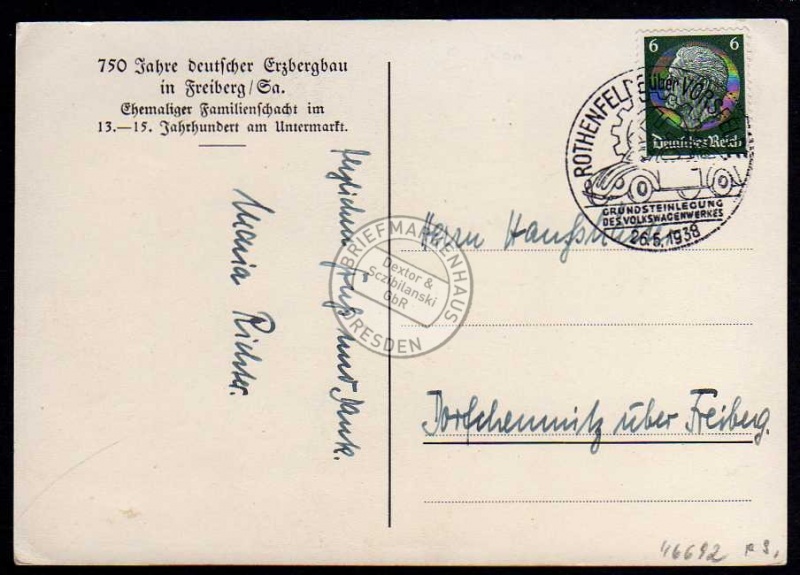 750 Jahre deutscher Erzbergbau
in Freiberg/Sa.
Ehemaliger Familienschacht im
13.—15. Jahrhundert am Untermarkt.
Herzlichen Gruß und Dank.
Maria Richter.
6 6
Deutsches Reich
ROTHENFELDE über VORS
GRUNDSTEINLEGUNG
DES VOLKSWAGENWERKES
26.5.1938
Herrn
Dorfchemnitz über Freiberg.
BRIEFMARKENHAUS
Dextor &
Sczibilanski
GbR
DRESDEN
46692